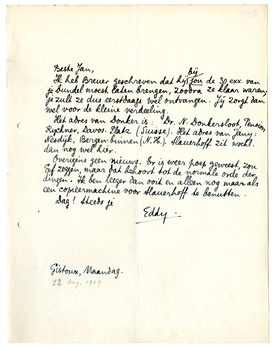 Beste Jan,
Bij
Ik heb Breuer geschreven dat hij jou de 30 exx. van
je bundel moest laten brengen, zoodra ze klaar waren;
je zult ze dus eerstdaags wel ontvangen. Jij zorgt dan
wel voor de kleine verdeeling.
Het adres van Donker is: Dr. N. Donkersloot, Pension
Rychner, Davos-Platz (Suisse). Het adres van Jany:
Nesdijk, Bergen-binnen (N.H.). Slauerhoff zit
dan nog wel hier.
Overigens geen nieuws. Er is weer poep geweest, zou
Gif zeggen, maar dat behoort tot de normale orde der
dingen. Ik ben leeger dan ooit en alleen nog maar als
een copieermachine voor Slauerhoff te benutten.
Dag! Steeds je
Eddy.
Gistoux, Maandag.
12 Aug. 1929